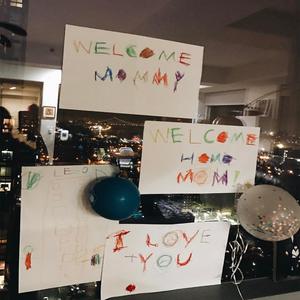 WELCOME
MOMMY
WELCOME
HOME
MOM!
I LOVE
YOU